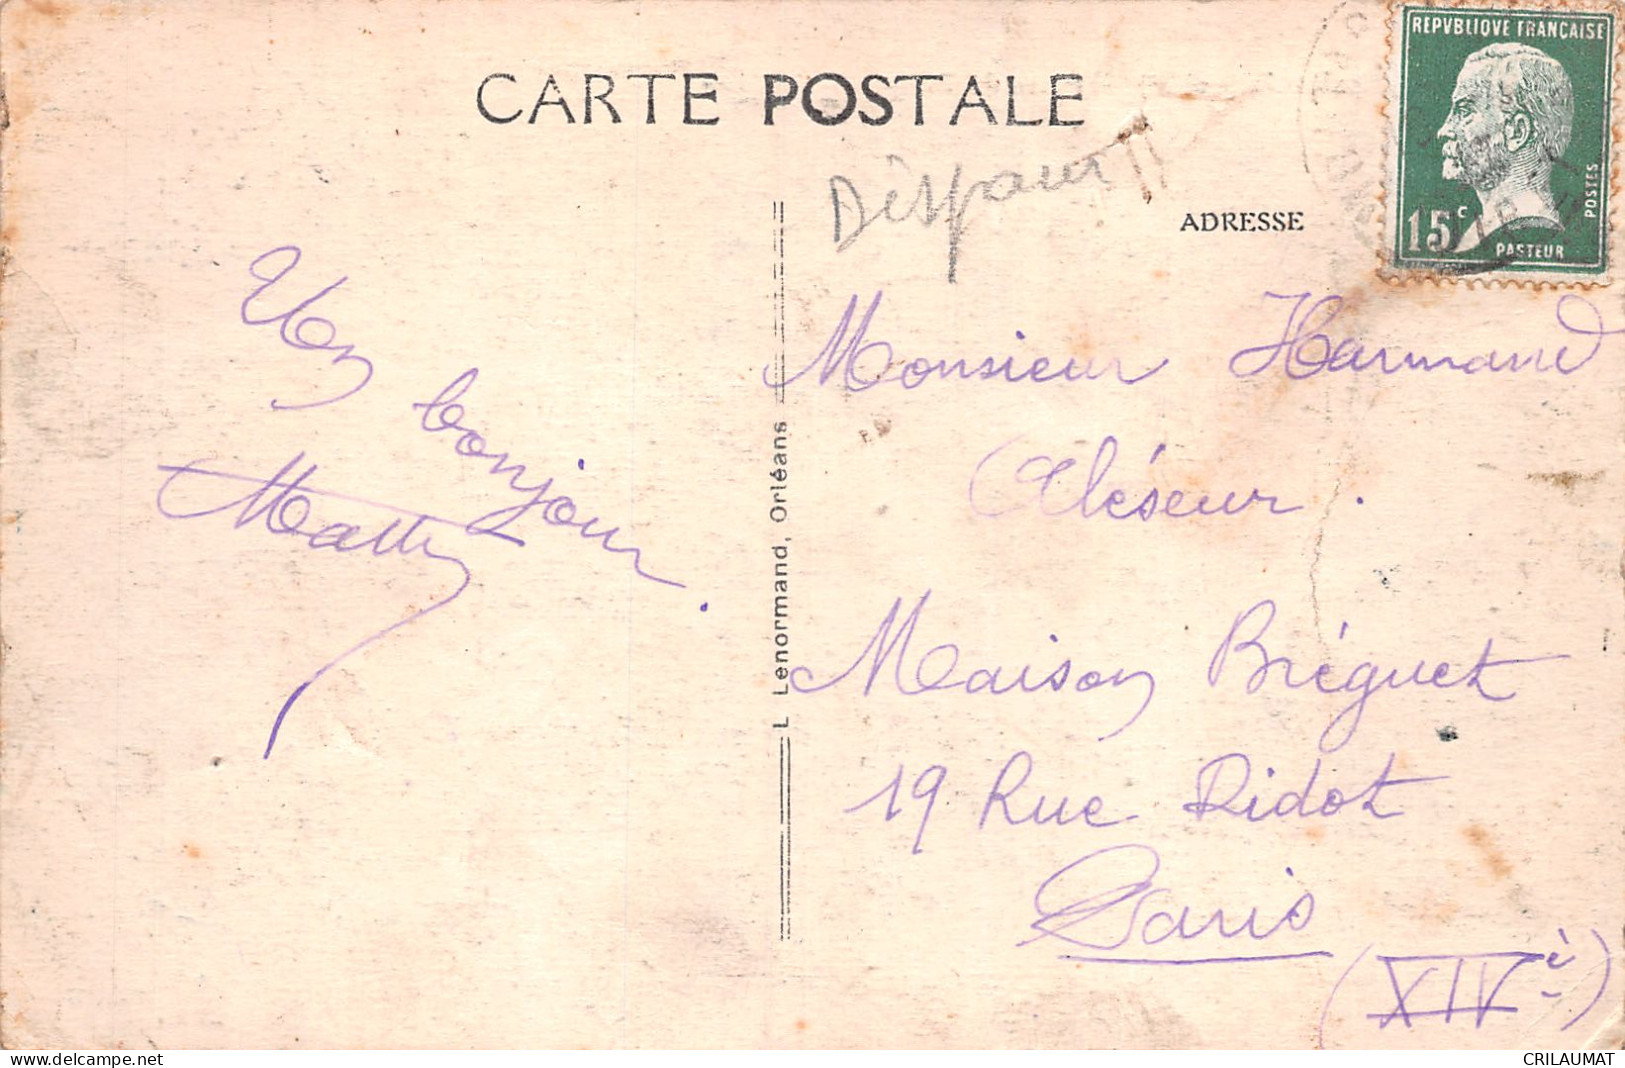 CARTE POSTALE
REPVBLIQVE FRANCAISE
15c
POSTES
PASTEUR
ADRESSE
Un
bonjour.
L Lenormand, Orléans
Monsieur Harmand
Aléseur.
Maison Bréguet
19 Rue Didot
Paris
(XIVè)
www.delcampe.net
CRILAUMAT